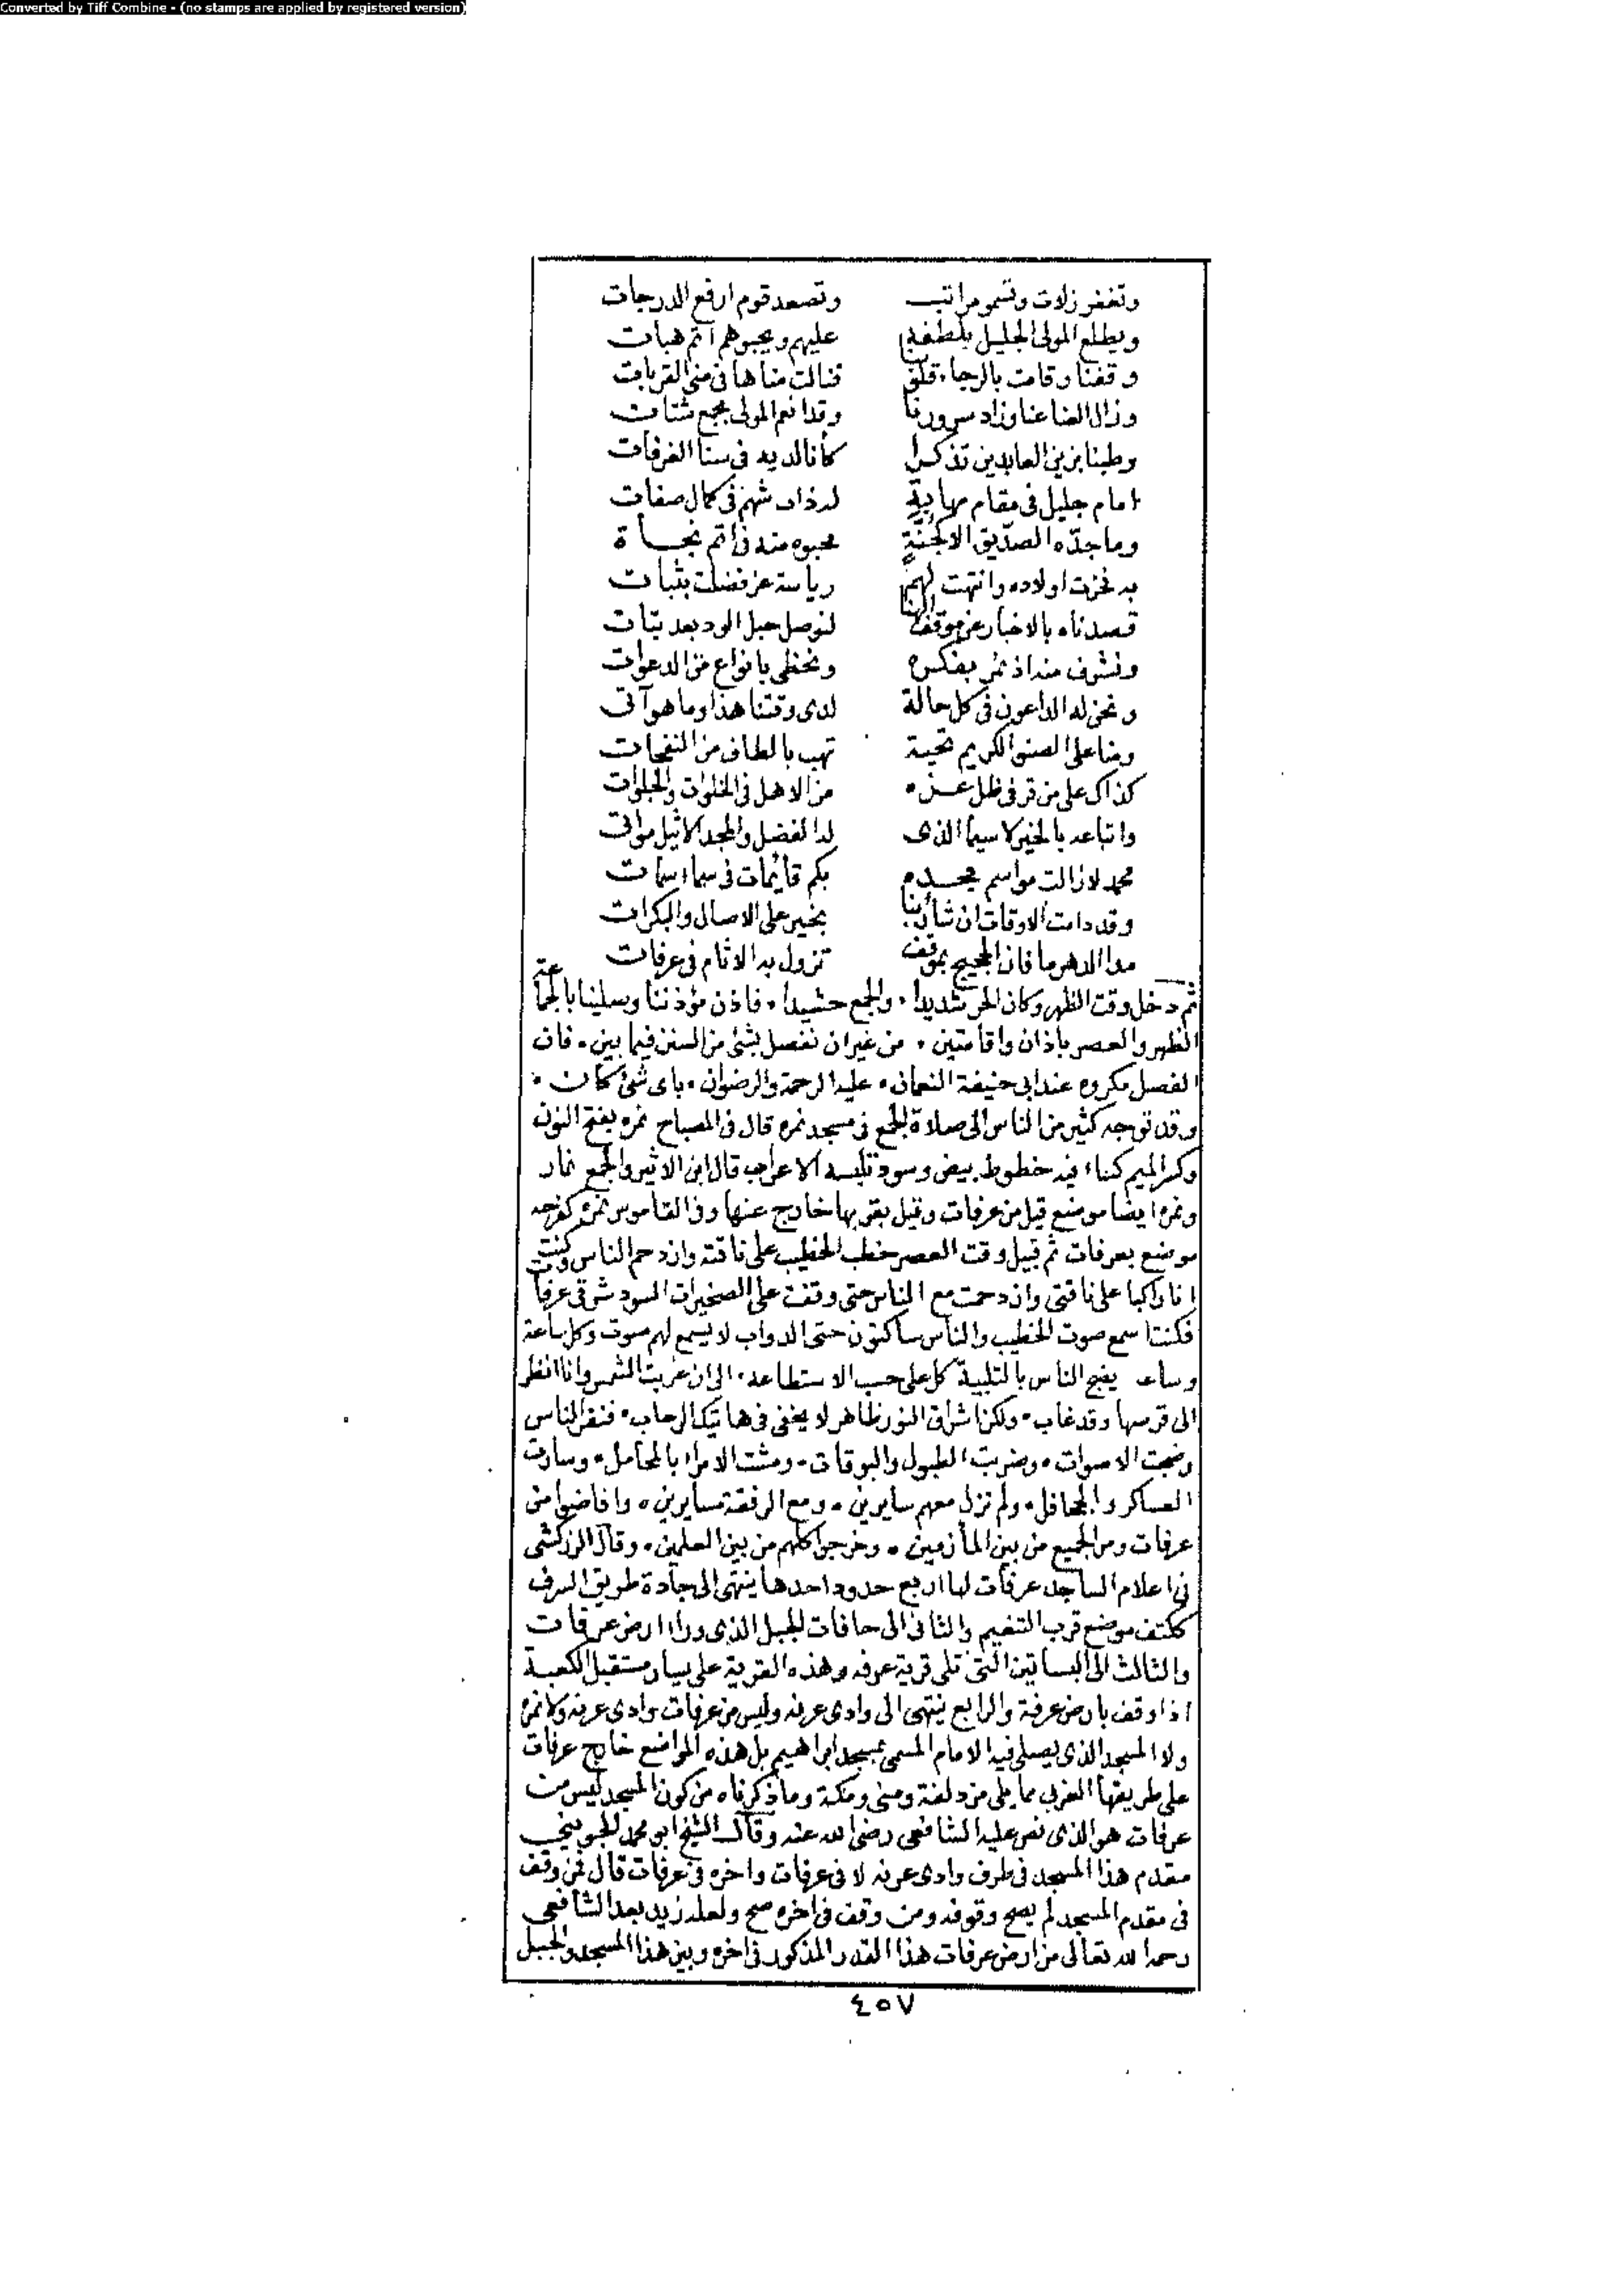 Converted by Tiff Combine - (no stamps are applied by registered version)
وتغفر زلات وتسمو مراتب وتصعد قوم ارفع الدرجات
ويطلع المولى الجليل بلطفه عليهم ويحبوهم اتم هبات
وقفنا وقامت بالرجاء فنالت مناها في منى القربات
وزال العنا عنا وزاد سرورنا وقد انعم المولى بجمع شتات
وطبنا بزين العابدين تذكرا كأنا لديه في سنا الغرفات
امام جليل في مقام مهابة له ذات شهم في كمال صفات
وما جده الصديق الا محبوه منه في اتم نجاة
به فخرت اولاده وانتهت لهم رياسة عز فضلت بثبات
قصدناه بالاخبار عن موقف الهنا لنوصل حبل الود بعد بتات
ونشرف منه اذ نمر بفكره ونحظى بانواع من الدعوات
ونحن له الداعون في كل حالة لدى وقتنا هذا وما هو آتى
ومنا على الصنو الكريم تحية تهب بالطاف من النفحات
كذاك على من قر في ظل عزه من الاهل في الخلوات والجلوات
واتباعه بالخير لا سيما الذى له الفضل والمجد الاثيل مواتى
محمد لا زالت مواسم مجده بكم قائمات في سماء سمات
وقد دامت الاوقات ان شاء ربنا بخير على الاصال والبكرات
مدا الدهر ما فاز الحجيج بموقف تزول به الاثام في عرفات
ثم دخل وقت الظهر وكان الحر شديدا . والجمع حشيدا . فاذن مؤذننا وصلينا بالجماعة
الظهر والعصر باذان واقامتين . من غير ان نفصل بشئ من السنن فيما بين . فان
الفصل مكروه عند ابى حنيفة النعمان . عليه الرحمة والرضوان . باى شئ كان .
وقد توجه كثير من الناس الى صلاة الجمع في مسجد نمره قال في المصباح نمره بفتح النون
وكسر الميم كساء فيه خطوط بيض وسود تلبسه الاعراب قال ابن الاثير والجمع نمار
ونمره ايضا موضع قيل من عرفات وقيل بقربها خارج عنها وفي القاموس نمره كفرحه
موضع بعرفات ثم قبيل وقت العصر خطب الخطيب على ناقته وازدحم الناس وكنت
انا راكبا على ناقتى وازدحمت مع الناس حتى وقفت على الصخيرات السود شرقى عرفات
فكنت اسمع صوت الخطيب والناس ساكتون حتى الدواب لا يسمع لهم صوت وكل ساعة
وساعه يضج الناس بالتلبية كل على حسب الاستطاعه . الى ان غربت الشمس وانا انظر
الى قرصها وقد غاب . ولكن اشراق النور ظاهر لا يخفى في هاتيك الرحاب . فنفر الناس
وضجت الاصوات . وضربت الطبول والبوقات . ومشت الامراء بالمحامل . وسارت
العساكر والجحافل . ولم نزل معهم سايرين . ومع الرفقة مسايرين . وافاضوا من
عرفات ومر الجميع من بين المأزمين . وخرجوا كلهم من بين العلمين . وقال الزركشى
في اعلام الساجد عرفات لها اربع حدود احدها ينتهى الى جادة طريق السرف
ككتف موضع قرب التنعيم والثانى الى حافات الجبل الذى وراء ارض عرفات
والثالث الى البساتين التى تلى قرية عرفه وهذه القرية على يسار مستقبل الكعبة
اذا وقف بارض عرفة والرابع ينتهى الى وادى عرنه وليس من عرفات وادى عرنه ولا نمره
ولا المسجد الذى يصلى فيه الامام المسمى بمسجد ابراهيم بل هذه المواضع خارج عرفات
على طريقها الغربى مما يلى مزدلفة ومنى ومكة وما ذكرناه من كون المسجد ليس من
عرفات هو الذى نص عليه الشافعى رضى الله عنه وقال الشيخ ابو محمد الجوينى
مقدم هذا المسجد في طرف وادى عرنه لا في عرفات واخره في عرفات قال فمن وقف
في مقدم المسجد لم يصح وقوفه ومن وقف في اخره صح ولعله زيد بعد الشافعى
رحمه الله تعالى من ارض عرفات هذا القدر المذكور في اخره وبين هذا المسجد والجبل
٤٥٧